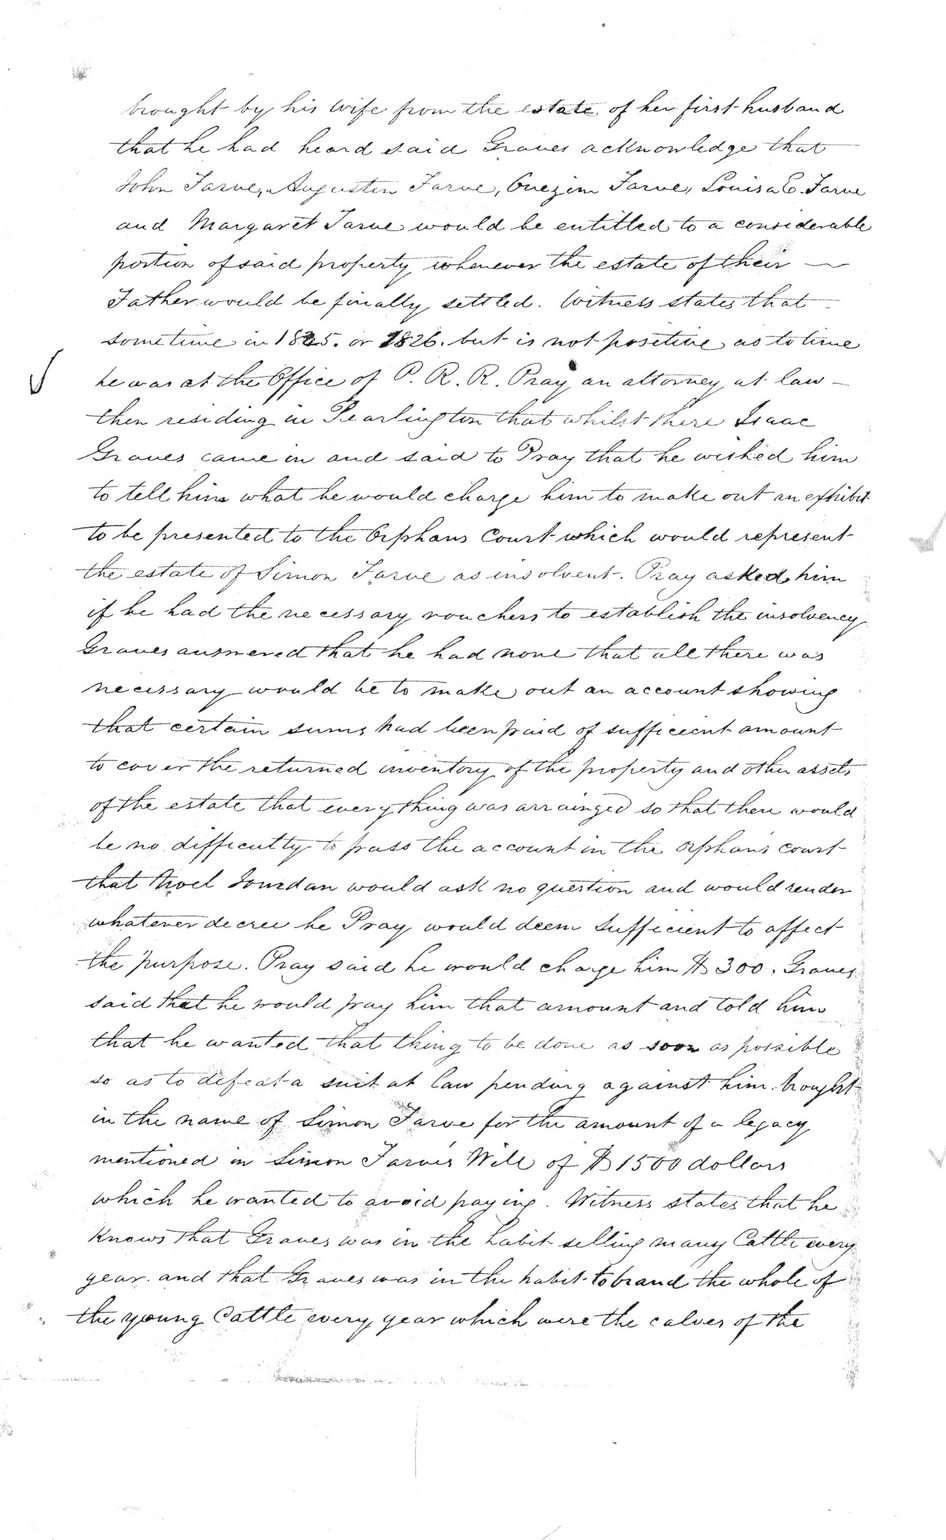 brought by his wife from the estate of her first husband
that he had heard said Graves acknowledge that
John Farve, Augustin Farve, Onezim Farve, Louisa E. Farve
and Margaret Farve would be entitled to a considerable
portion of said property whenever the estate of their —
Father would be finally settled. Witness states that
sometime in 1825. or 1826. but is not positive as to time
he was at the Office of P. R. R. Pray an attorney at law —
then residing in Pearlington that whilst there Isaac
Graves came in and said to Pray that he wished him
to tell him what he would charge him to make out an exhibit
to be presented to the Orphans Court which would represent
the estate of Simon Farve as insolvent. Pray asked him
if he had the necessary vouchers to establish the insolvency
Graves answered that he had none that all there was
necessary would be to make out an account showing
that certain sums had been paid of sufficient amount
to cover the returned inventory of the property and other assets
of the estate that every thing was arrainged so that there would
be no difficulty to pass the account in the orphans court
that Noel Jourdan would ask no question and would render
whatever decree he Pray would deem sufficient to affect
the purpose. Pray said he would charge him $300. Graves
said that he would pay him that amount and told him
that he wanted that thing to be done as soon as possible
so as to defeat a suit at law pending against him brought
in the name of Simon Farve for the amount of a legacy
mentioned in Simon Farve's Will of $1500 dollars
which he wanted to avoid paying. Witness states that he
knows that Graves was in the habit selling many Cattle every
year. and that Graves was in the habit to brand the whole of
the young Cattle every year which were the calves of the